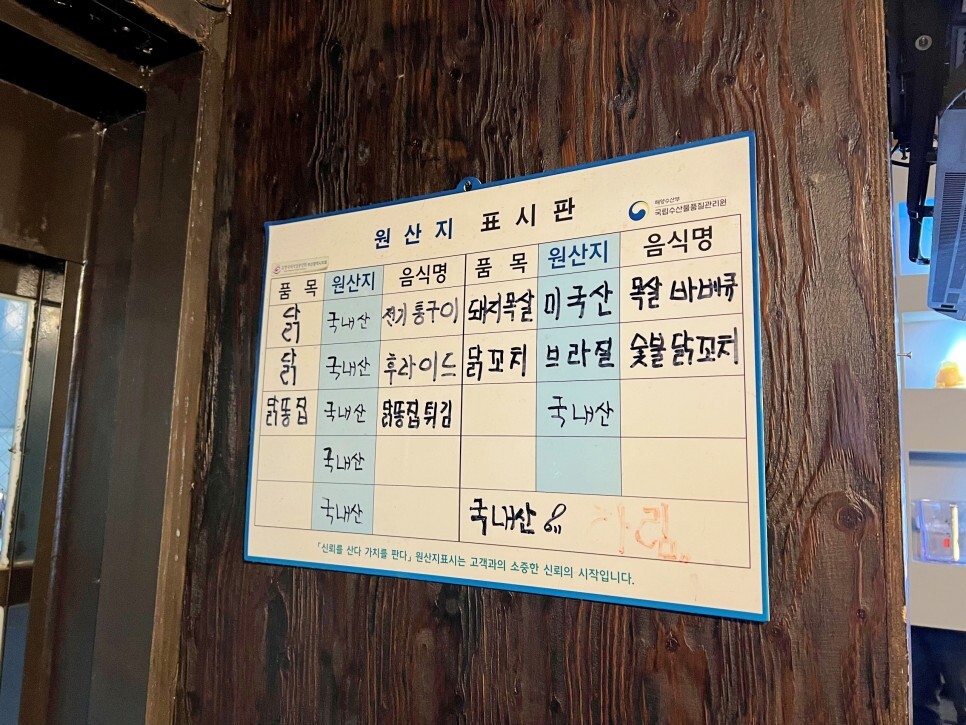 원산지 표시판
해양수산부
국립수산물품질관리원
품목 원산지 음식명 품목 원산지 음식명
닭 국내산 전기통구이 돼지목살 미국산 목살 바베큐
닭 국내산 후라이드 닭꼬치 브라질 숯불닭꼬치
닭똥집 국내산 닭똥집튀김 국내산
국내산
국내산 국내산
「신뢰를 산다 가치를 판다」 원산지표시는 고객과의 소중한 신뢰의 시작입니다.